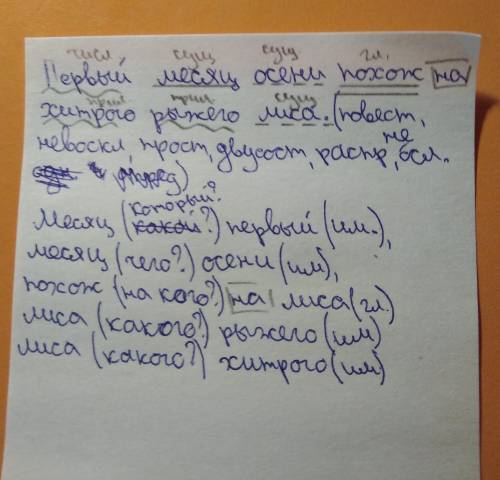 числ. сущ. сущ. гл.
Первый месяц осени похож на
прил. прил. сущ.
хитрого рыжего лиса. (повест,
невоскл, прост, двусост, распр, не осл.
месяц (который? какой?) первый (им.),
месяц (чего?) осени (им),
похож (на кого?) на лиса (гл.)
лиса (какого?) рыжего (им)
лиса (какого?) хитрого (им)